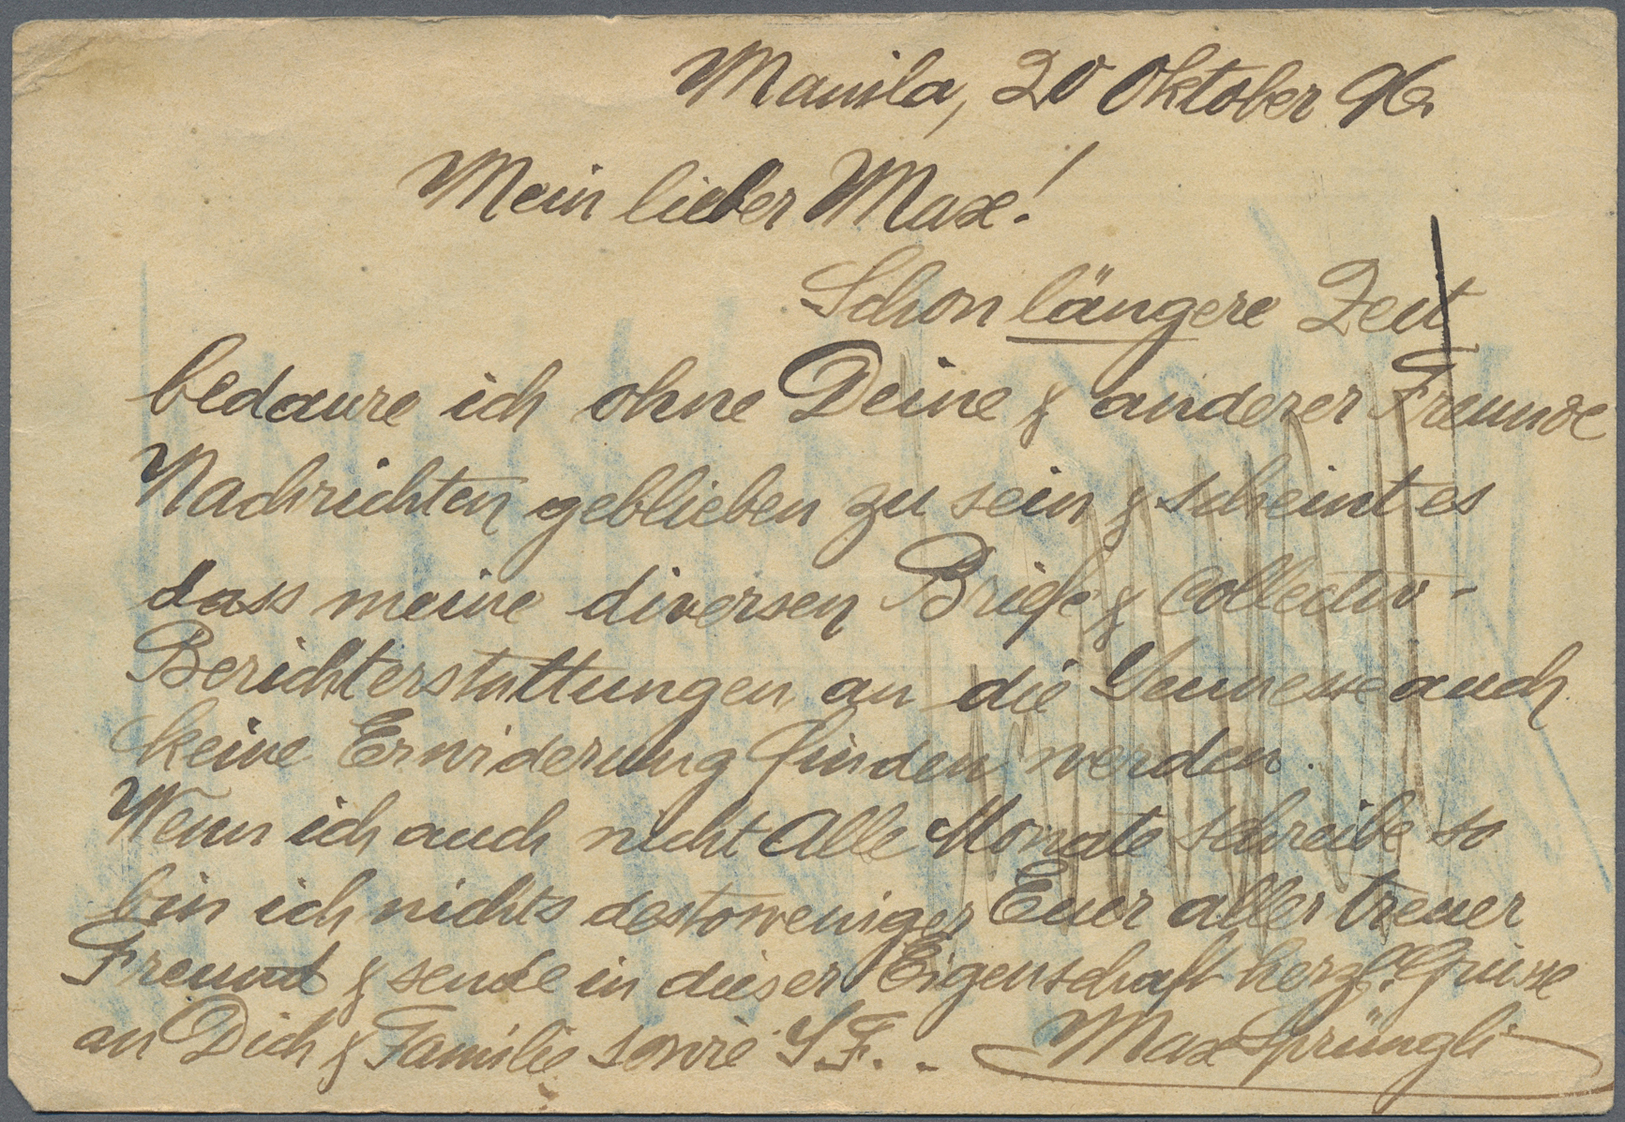 Manila, 20 Oktober 96.
Mein lieber Max!
Schon längere Zeit
bedaure ich ohne Deine & anderer Freunde
Nachrichten geblieben zu sein & scheint es
dass meine diversen Briefe & Collectiv-
Berichterstattungen an die auch
keine Erwiderung finden werden.
Wenn ich auch nicht Alle Monate schreibe so
bin ich nichts destoweniger Euer aller treuer
Freund & sende in dieser Eigenschaft herzl. Grüsse
an Dich & Familie sowie Max Sprüngli